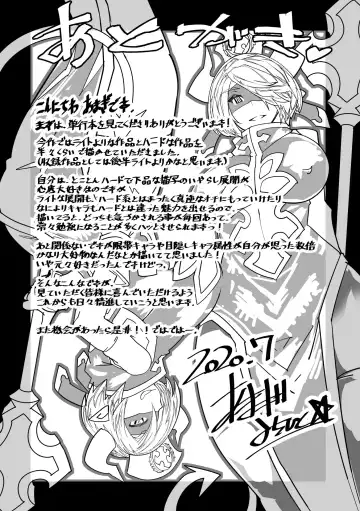 あとがき
こんにちわ あまぎです.
まずは、単行本を見てくださりありがとうございます!
今作ではライトよりな作品とハードな作品を
半々くらいで描かせていただきました。
(収録作品としては後半ライトよりかなと思います)
自分は、とことんハードで下品な描写のいやらしい展開が
心底大好きなのですが
ライトな展開も、ハード系とはまったく真逆なオチにもっていけたり
なによりキャラもハードとは違った魅力を出せるので、
描いてると、どっちも気づかされる事が毎回あって、
常々勉強になることが多くハッとさせられます!
あと関係ないですが眼帯キャラや目隠しキャラ属性が自分が思った数倍
かなり大好物なんだなとか描いてて思いました!
いや元々好きだったんですけどっ。
そんなこんなですが、
見ていただく皆様に喜んでいただけるよう
これからも日々精進していこうと思います。
また機会があったら是非!!ではでは〜!
2020.7